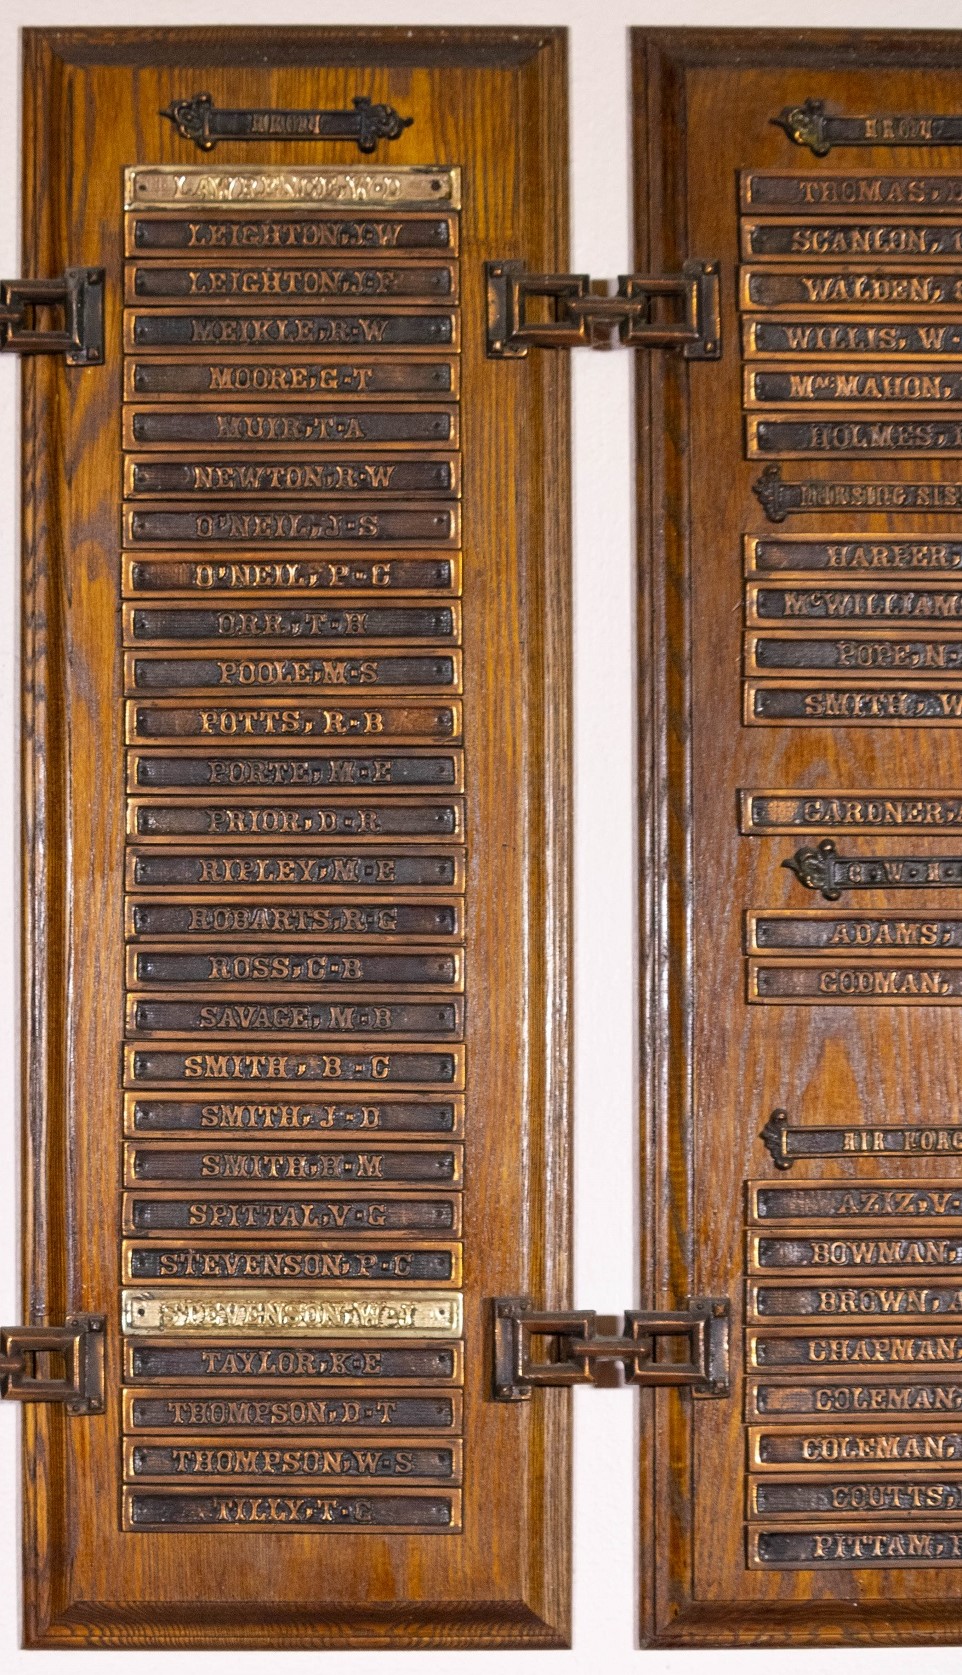 ARMY
LAWRENCE, W·D
LEIGHTON, J·W
LEIGHTON, J·F
MEIKLE, R·W
MOORE, G·T
MUIR, T·A
NEWTON, R·W
O'NEIL, J·S
O'NEIL, P·C
ORR, T·H
POOLE, M·S
POTTS, R·B
PORTE, M·E
PRIOR, D·R
RIPLEY, M·E
ROBARTS, R·G
ROSS, C·B
SAVAGE, M·B
SMITH, B·C
SMITH, J·D
SMITH, H·M
SPITTAL, V·G
STEVENSON, P·C
STEVENSON, W·J
TAYLOR, K·E
THOMPSON, D·T
THOMPSON, W·S
TILLY, T·C
ARMY
THOMAS,
SCANLON,
WALDEN,
WILLIS, W·
MACMAHON,
HOLMES,
NURSING SIS
HARPER,
MCWILLIAM
POPE, N·
SMITH, W
GARDNER,
C·W·A·
ADAMS,
GODMAN,
AIR FORC
AZIZ, V·
BOWMAN,
BROWN, A
CHAPMAN,
COLEMAN,
COLEMAN,
COUTTS,
PITTAM,